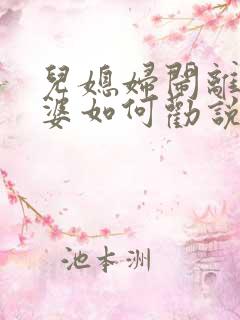 兒媳婦鬧離
婆如何勸說
池本洲